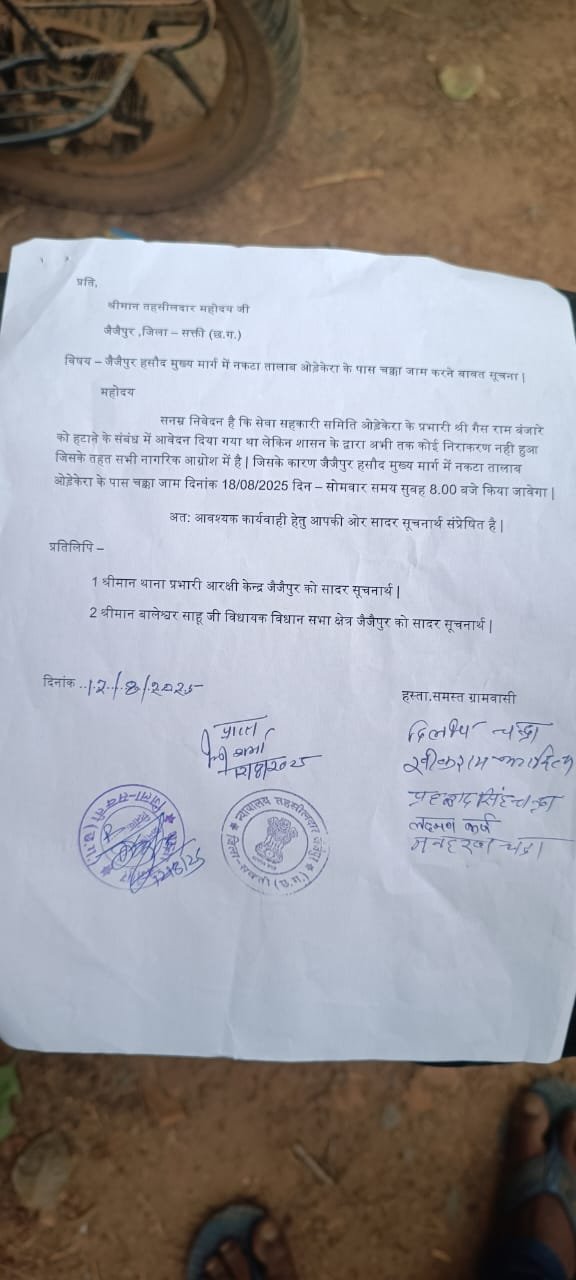 प्रति,
श्रीमान तहसीलदार महोदय जी
जैजैपुर ,जिला – सक्ती (छ.ग.)
विषय – जैजैपुर हसौद मुख्य मार्ग में नकटा तालाब ओड़ेकेरा के पास चक्का जाम करने बाबत सूचना |
महोदय
सनम्र निवेदन है कि सेवा सहकारी समिति ओड़ेकेरा के प्रभारी श्री गैस राम बंजारे
को हटाने के संबंध में आवेदन दिया गया था लेकिन शासन के द्वारा अभी तक कोई निराकरण नही हुआ
जिसके तहत सभी नागरिक आग्रोश में है | जिसके कारण जैजैपुर हसौद मुख्य मार्ग में नकटा तालाब
ओड़ेकेरा के पास चक्का जाम दिनांक 18/08/2025 दिन – सोमवार समय सुवह 8.00 बजे किया जावेगा |
अत: आवश्यक कार्यवाही हेतु आपकी ओर सादर सूचनार्थ संप्रेषित है |
प्रतिलिपि –
1 श्रीमान थाना प्रभारी आरक्षी केन्द्र जैजैपुर को सादर सूचनार्थ |
2 श्रीमान बालेश्वर साहू जी विधायक विधान सभा क्षेत्र जैजैपुर को सादर सूचनार्थ |
दिनांक ..12/8/2025
हस्ता.समस्त ग्रामवासी
चन्द्रा
प्रहलाद सिंह चन्द्रा
लक्ष्मण कर्ष
मनहरण चंद्रा
शर्मा
न्यायालय तहसीलदार जैजैपुर
जिला-सक्ती (छ.ग.)